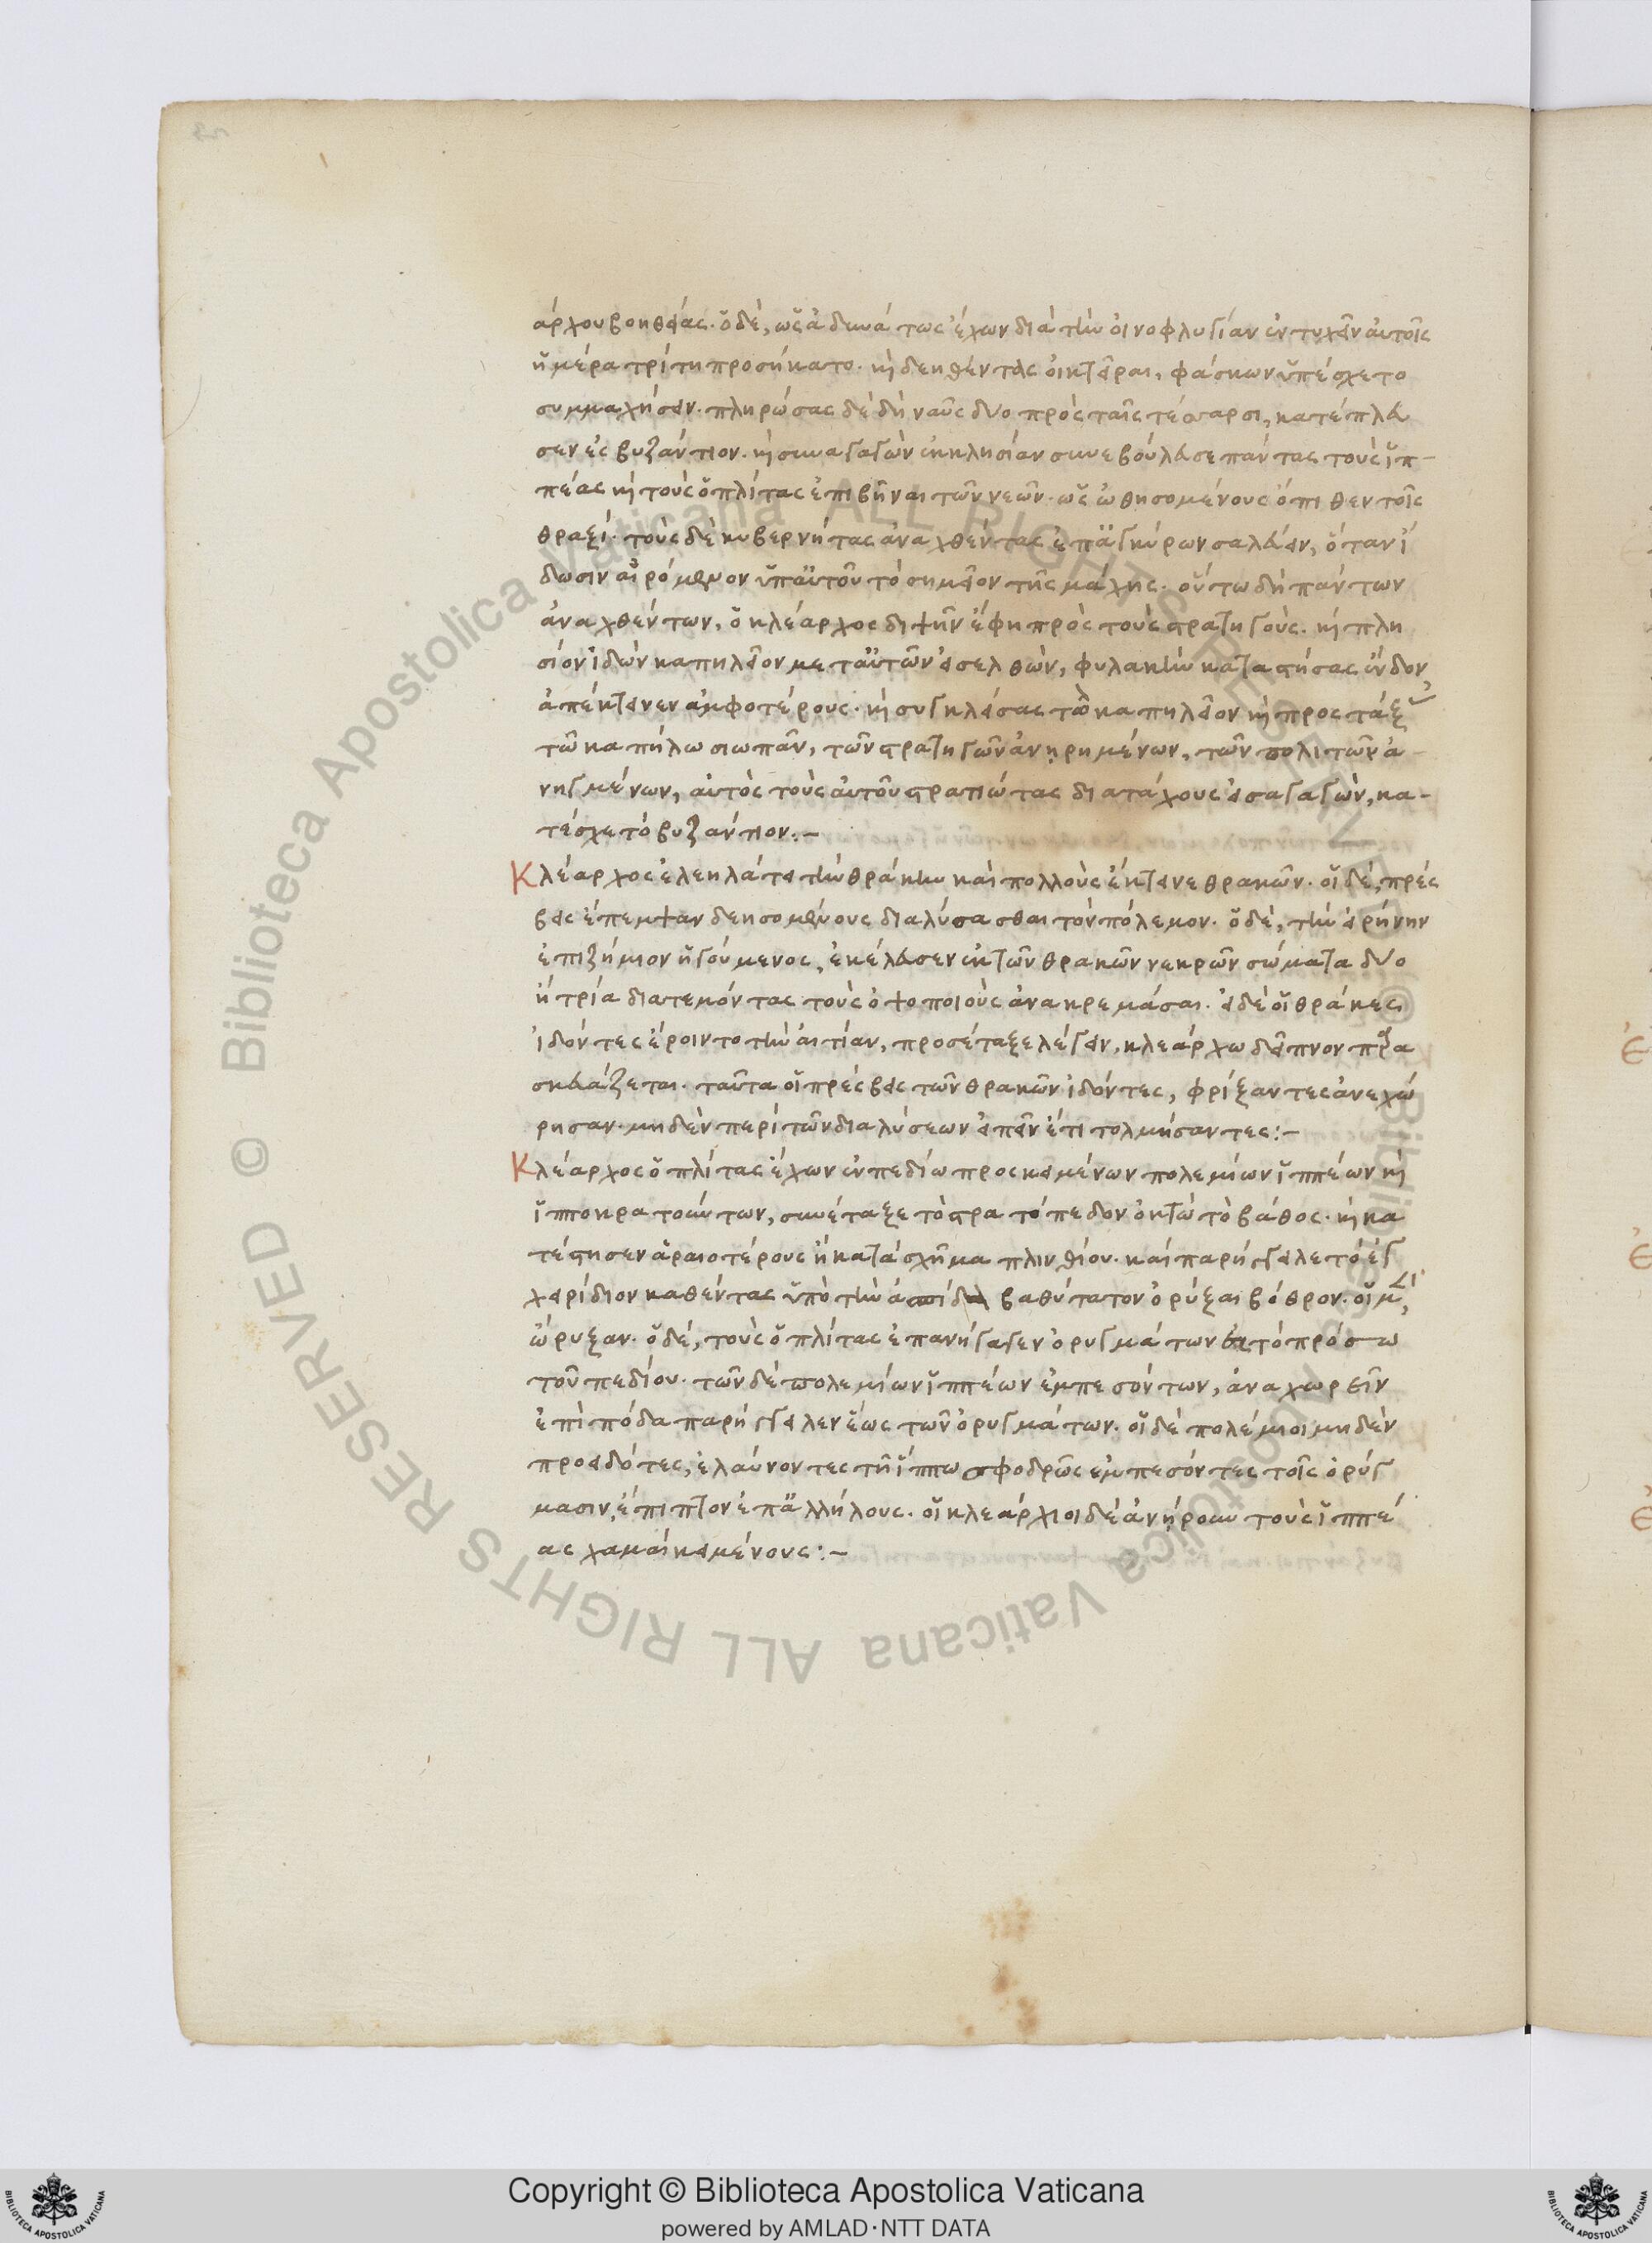 άρχου βοηθείας· ὁ δὲ, ὡς ἀδυνάτως ἔχων διὰ τὴν οἰνοφλυγίαν ἐντυχεῖν αὐτοῖς
ἡμέρα τρίτη προσήκατο· καὶ δεηθέντας οἰκτεῖραι, φάσκων ὑπέσχετο
συμμαχήσειν· πληρώσας δὲ δὴ ναῦς δύο πρὸς ταῖς τέσσαρσι, κατέπλευ
σεν ἐς βυζάντιον· καὶ συναγαγὼν ἐκκλησίαν συνεβούλευσε πάντας τοὺς ἱπ-
πέας καὶ τοὺς ὁπλίτας ἐπιβῆναι τῶν νεῶν· ὡς ὠθησομένους ὄπιθεν τοῖς
θραξί· τοὺς δὲ κυβερνήτας ἀναχθέντας ἐπ' ἀγκύρων σαλεύειν, ὅταν ἴ
δωσιν αἰρόμενον ὑπ' αὐτοῦ τὸ σημεῖον τῆς μάχης· οὕτω δὴ πάντων
ἀναχθέντων, ὁ κλέαρχος διψῆν ἔφη πρὸς τοὺς στρατηγοὺς· καὶ πλη
σίον ἰδὼν καπηλεῖον μετ' αὐτῶν εἰσελθὼν, φυλακὴν καταστήσας ἔνδον
ἀπέκτεινεν ἀμφοτέρους· καὶ συγκλείσας τὸ καπηλεῖον καὶ προστάξας
τῶ καπήλω σιωπᾶν, τῶν στρατηγῶν ἀνηρημένων, τῶν πολιτῶν ἀ
νηγμένων, αὐτὸς τοὺς αὐτοῦ στρατιώτας διατάχους εἰσαγαγὼν, κα-
τέσχε τὸ βυζάντιον:–
Κλέαρχος ἐλεηλάτει τὴν θράκην καὶ πολλοὺς ἔκτεινε θρακῶν· οἱ δὲ, πρέσ
βεις ἔπεμψαν δεησομένους διαλύσασθαι τὸν πόλεμον· ὁ δὲ, τὴν εἰρήνην
ἐπιζήμιον ἡγούμενος, ἐκέλευσεν ἐκ τῶν θρακῶν νεκρῶν σώματα δύο
ἢ τρία διατεμόντας τοὺς ὀψοποιοὺς ἀνακρεμάσαι· εἰ δὲ οἱ θράκες
ἰδόντες ἔροιντο τὴν αἰτίαν, προσέταξε λέγειν, κλεάρχω δεῖπνον παρα
σκευάζεται· ταῦτα οἱ πρέσβεις τῶν θρακῶν ἰδόντες, φρίξαντες ἀνεχώ
ρησαν· μηδὲν περὶ τῶν διαλύσεων εἰπεῖν ἔτι τολμήσαντες:–
Κλέαρχος ὁπλίτας ἔχων ἐν πεδίω προσκειμένων πολεμίων ἱππέων καὶ
ἱπποκρατούντων, συνέταξε τὸ στρατόπεδον ὀκτὼ τὸ βάθος· καὶ κα
τέστησεν ἀραιοτέρους ἢ κατὰ σχῆμα πλινθίου· καὶ παρήγγειλε τὸ ἐγ
χειρίδιον καθέντας ὑπὸ τὴν ἀσπίδα βαθύτατον ὀρύξαι βόθρον· οἱ μὲν,
ὤρυξαν· ὁ δὲ, τοὺς ὁπλίτας ἐπανήγαγεν ὀρυγμάτων ἐπὶ τὸ πρόσω
τοῦ πεδίου· τῶν δὲ πολεμίων ἱππέων ἐμπεσόντων, ἀναχωρεῖν
ἐπὶ πόδα παρήγγειλεν ἕως τῶν ὀρυγμάτων· οἱ δὲ πολέμιοι μηδὲν
προειδότες, ἐλαύνοντες τῆ ἵππω σφοδρῶς ἐμπεσόντες τοῖς ὀρύγ
μασιν, ἔπιπτον ἐπ' ἀλλήλους· οἱ κλεάρχιοι δὲ ἀνήρουν τοὺς ἱππέ
ας χαμαὶ κειμένους:–
Copyright © Biblioteca Apostolica Vaticana
powered by AMLAD·NTT DATA
© Biblioteca Apostolica Vaticana ALL RIGHTS RESERVED © Biblioteca Apostolica Vaticana ALL RIGHTS RESERVED
BIBLIOTECA APOSTOLICA VATICANA
BIBLIOTECA APOSTOLICA VATICANA